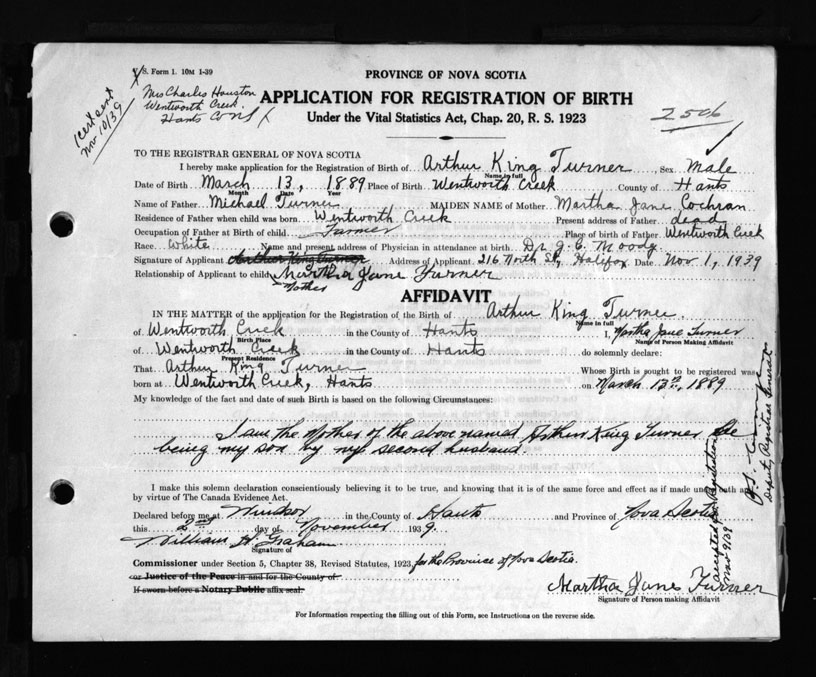 V. S. Form 1. 10M 1-39
Mrs Charles Houston
Wentworth Creek.
Hants Co NS
1 cert sent
Nov 10/39
2506
PROVINCE OF NOVA SCOTIA
APPLICATION FOR REGISTRATION OF BIRTH
Under the Vital Statistics Act, Chap. 20, R. S. 1923
TO THE REGISTRAR GENERAL OF NOVA SCOTIA
I hereby make application for the Registration of Birth of Arthur King Turner, Sex Male
Name in full
Date of Birth March 13, 1889 Place of Birth Wentworth Creek County of Hants
Month Date Year
Name of Father Michael Turner MAIDEN NAME of Mother Martha Jane Cochran
Residence of Father when child was born Wentworth Creek Present address of Father dead
Occupation of Father at Birth of child Farmer Place of birth of Father Wentworth Creek
Race White Name and present address of Physician in attendance at birth Dr J. C. Moody
Signature of Applicant Arthur King Turner Address of Applicant 216 North St, Halifax Date Nov 1, 1939
Relationship of Applicant to child Martha Jane Turner
Mother
AFFIDAVIT
IN THE MATTER of the application for the Registration of the Birth of Arthur King Turner.
Name in full
of Wentworth Creek in the County of Hants I, Martha Jane Turner
Birth Place Name of Person Making Affidavit
of Wentworth Creek in the County of Hants do solemnly declare:
Present Residence
That Arthur King Turner Whose Birth is sought to be registered was
born at Wentworth Creek, Hants on March 13th, 1889
My knowledge of the fact and date of such Birth is based on the following Circumstances:
I am the Mother of the above named Arthur King Turner he
being my son by my second husband.
I make this solemn declaration conscientiously believing it to be true, and knowing that it is of the same force and effect as if made under oath and
by virtue of The Canada Evidence Act.
Declared before me at Windsor in the County of Hants and Province of Nova Scotia
this 2nd day of November 1939.
William H. Graham
Signature of
Commissioner under Section 5, Chapter 38, Revised Statutes, 1923, for the Province of Nova Scotia.
or Justice of the Peace in and for the County of
If sworn before a Notary Public affix seal
Martha Jane Turner
Signature of Person making Affidavit
For Information respecting the filling out of this Form, see Instructions on the reverse side.
Accepted for Registration
Nov 9/39
Deputy Registrar General